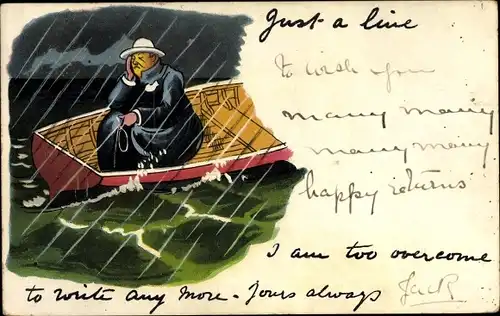 Just a line
to wish you
many many
many many
happy returns
I am too overcome
to write any more - Yours always Jack